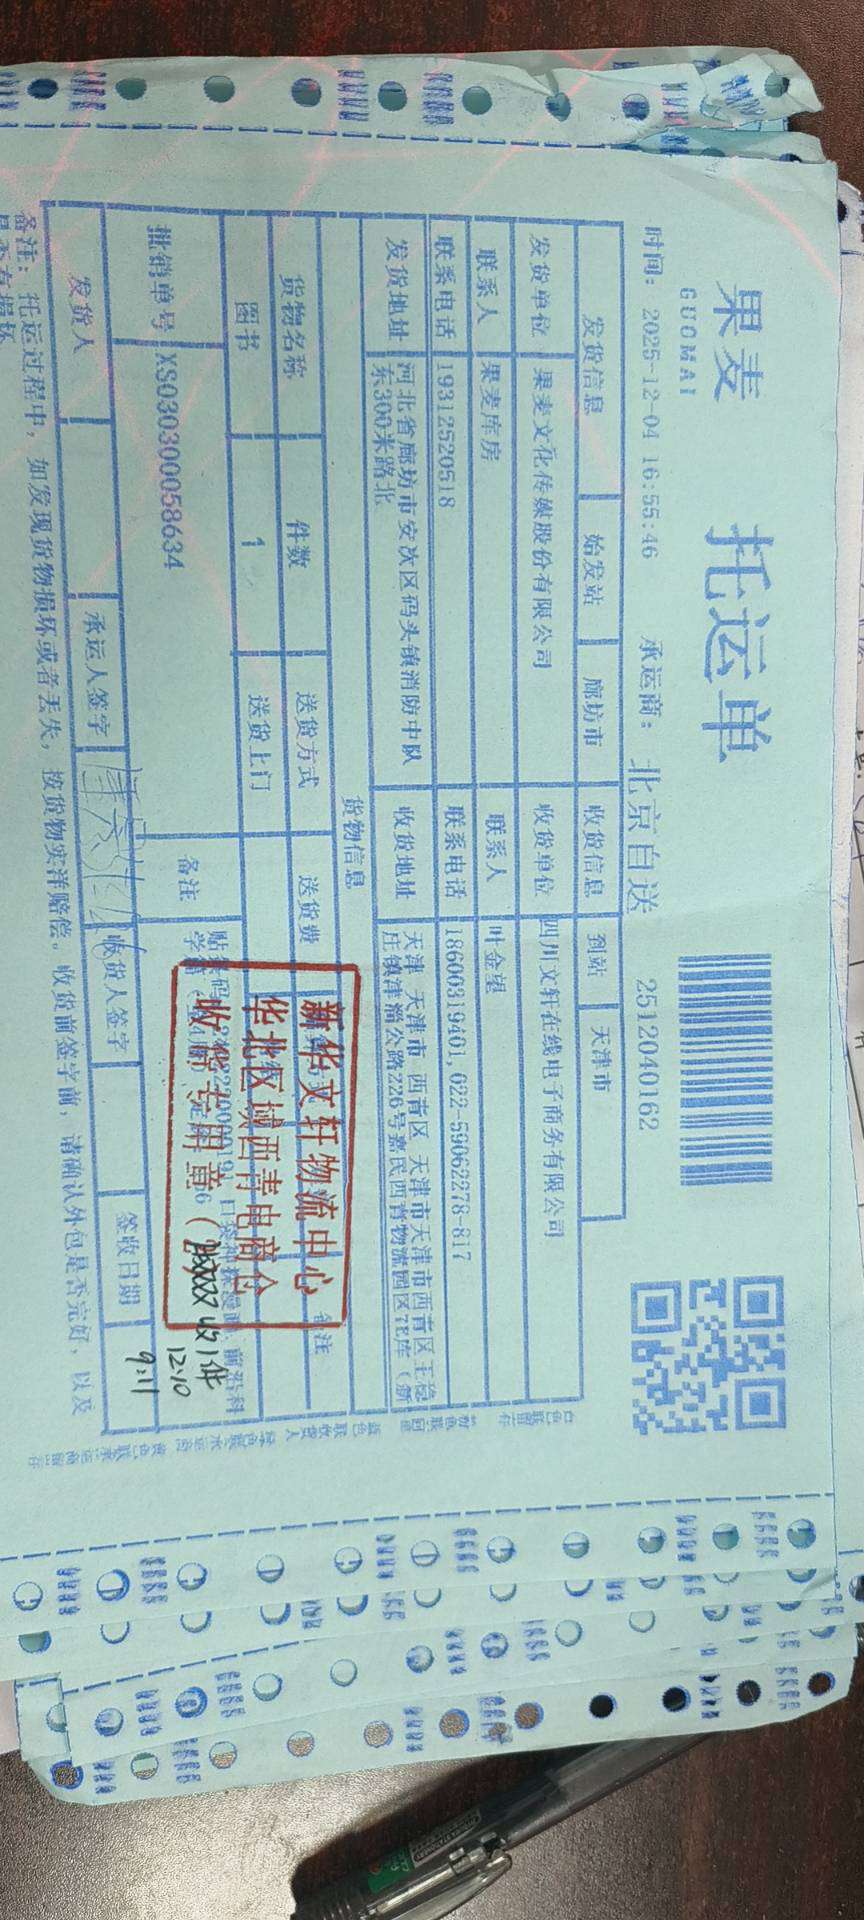 果麦
GUOMAI
托运单
2512040162
时间: 2025-12-04 16:55:46 承运商: 北京自送
发货信息 始发站 廊坊市 收货信息 到站 天津市
发货单位 果麦文化传媒股份有限公司 收货单位 四川文轩在线电子商务有限公司
联系人 果麦库房 联系人 叶金望
联系电话 19312520518 联系电话 18600319401,022-59062278-817
发货地址 河北省廊坊市安次区码头镇消防中队东300米路北 收货地址 天津 天津市 西青区 天津市天津市西青区王稳庄镇津淄公路226号嘉民西青物流园区7E库(新
货物信息
货物名称 件数 送货方式 送货费 备注
图书 1 送货上门
批销单号 XS030300058634 备注 贴条码
口袋神探漫画、前沿科学
新华文轩物流中心
华北区域西青电商仓
收货专用章
收1件
12.10
9:11
发货人 承运人签字 收货人签字 签收日期
备注: 托运过程中, 如发现货物损坏或者丢失, 按货物实洋赔偿。收货前签字前, 请确认外包是否完好, 以及是否有损坏